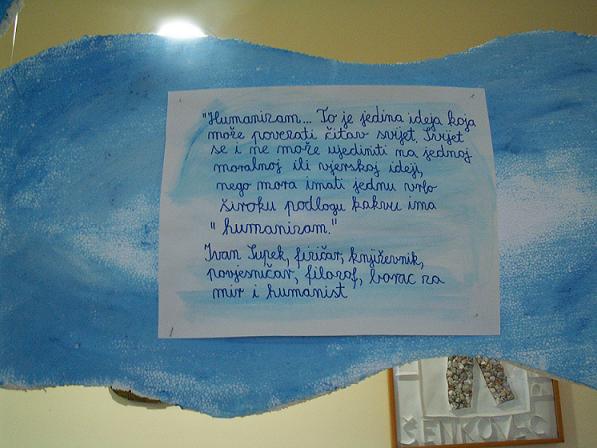 "Humanizam... To je jedina ideja koja
može povezati čitav svijet. Svijet
se i ne može ujediniti na jednoj
moralnoj ili vjerskoj ideji,
nego mora imati jednu vrlo
široku podlogu kakvu ima
"humanizam."
Ivan Supek, fizičar, književnik,
povjesničar, filozof, borac za
mir i humanist
ŠENKOVEC